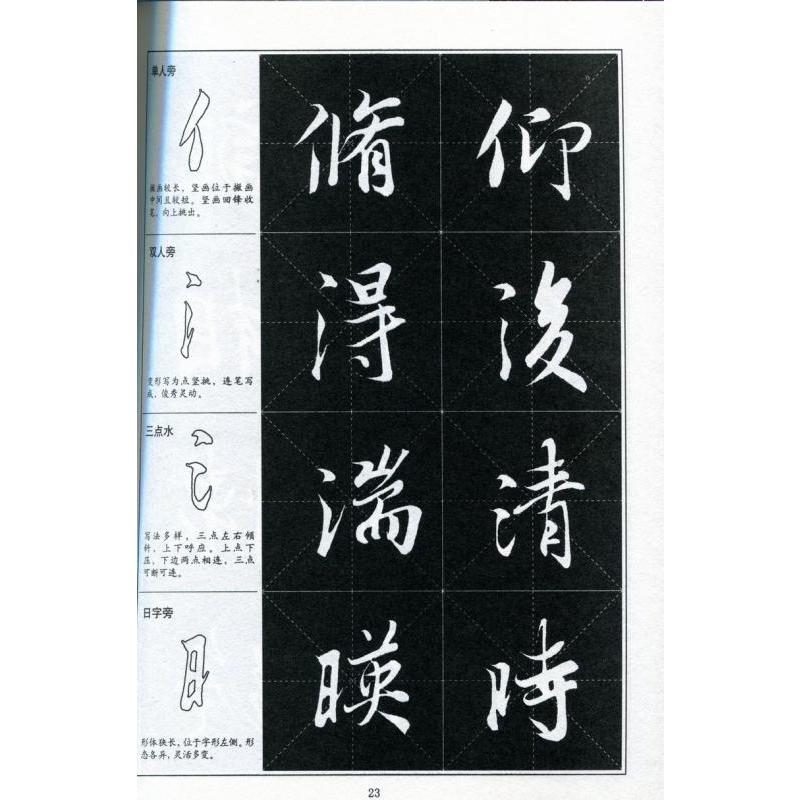 单人旁
撇画较长，竖画位于撇画
中间且较短。竖画回锋收
笔，向上挑出。
脩 仰
双人旁
变形写为点竖挑，连笔写
成，俊秀灵动。
得 後
三点水
写法多样，三点左右倾
斜，上下呼应。上点下
压，下边两点相连，三点
可断可连。
湍 清
日字旁
形体狭长，位于字形左侧。形
态各异，灵活多变。
暎 時
23